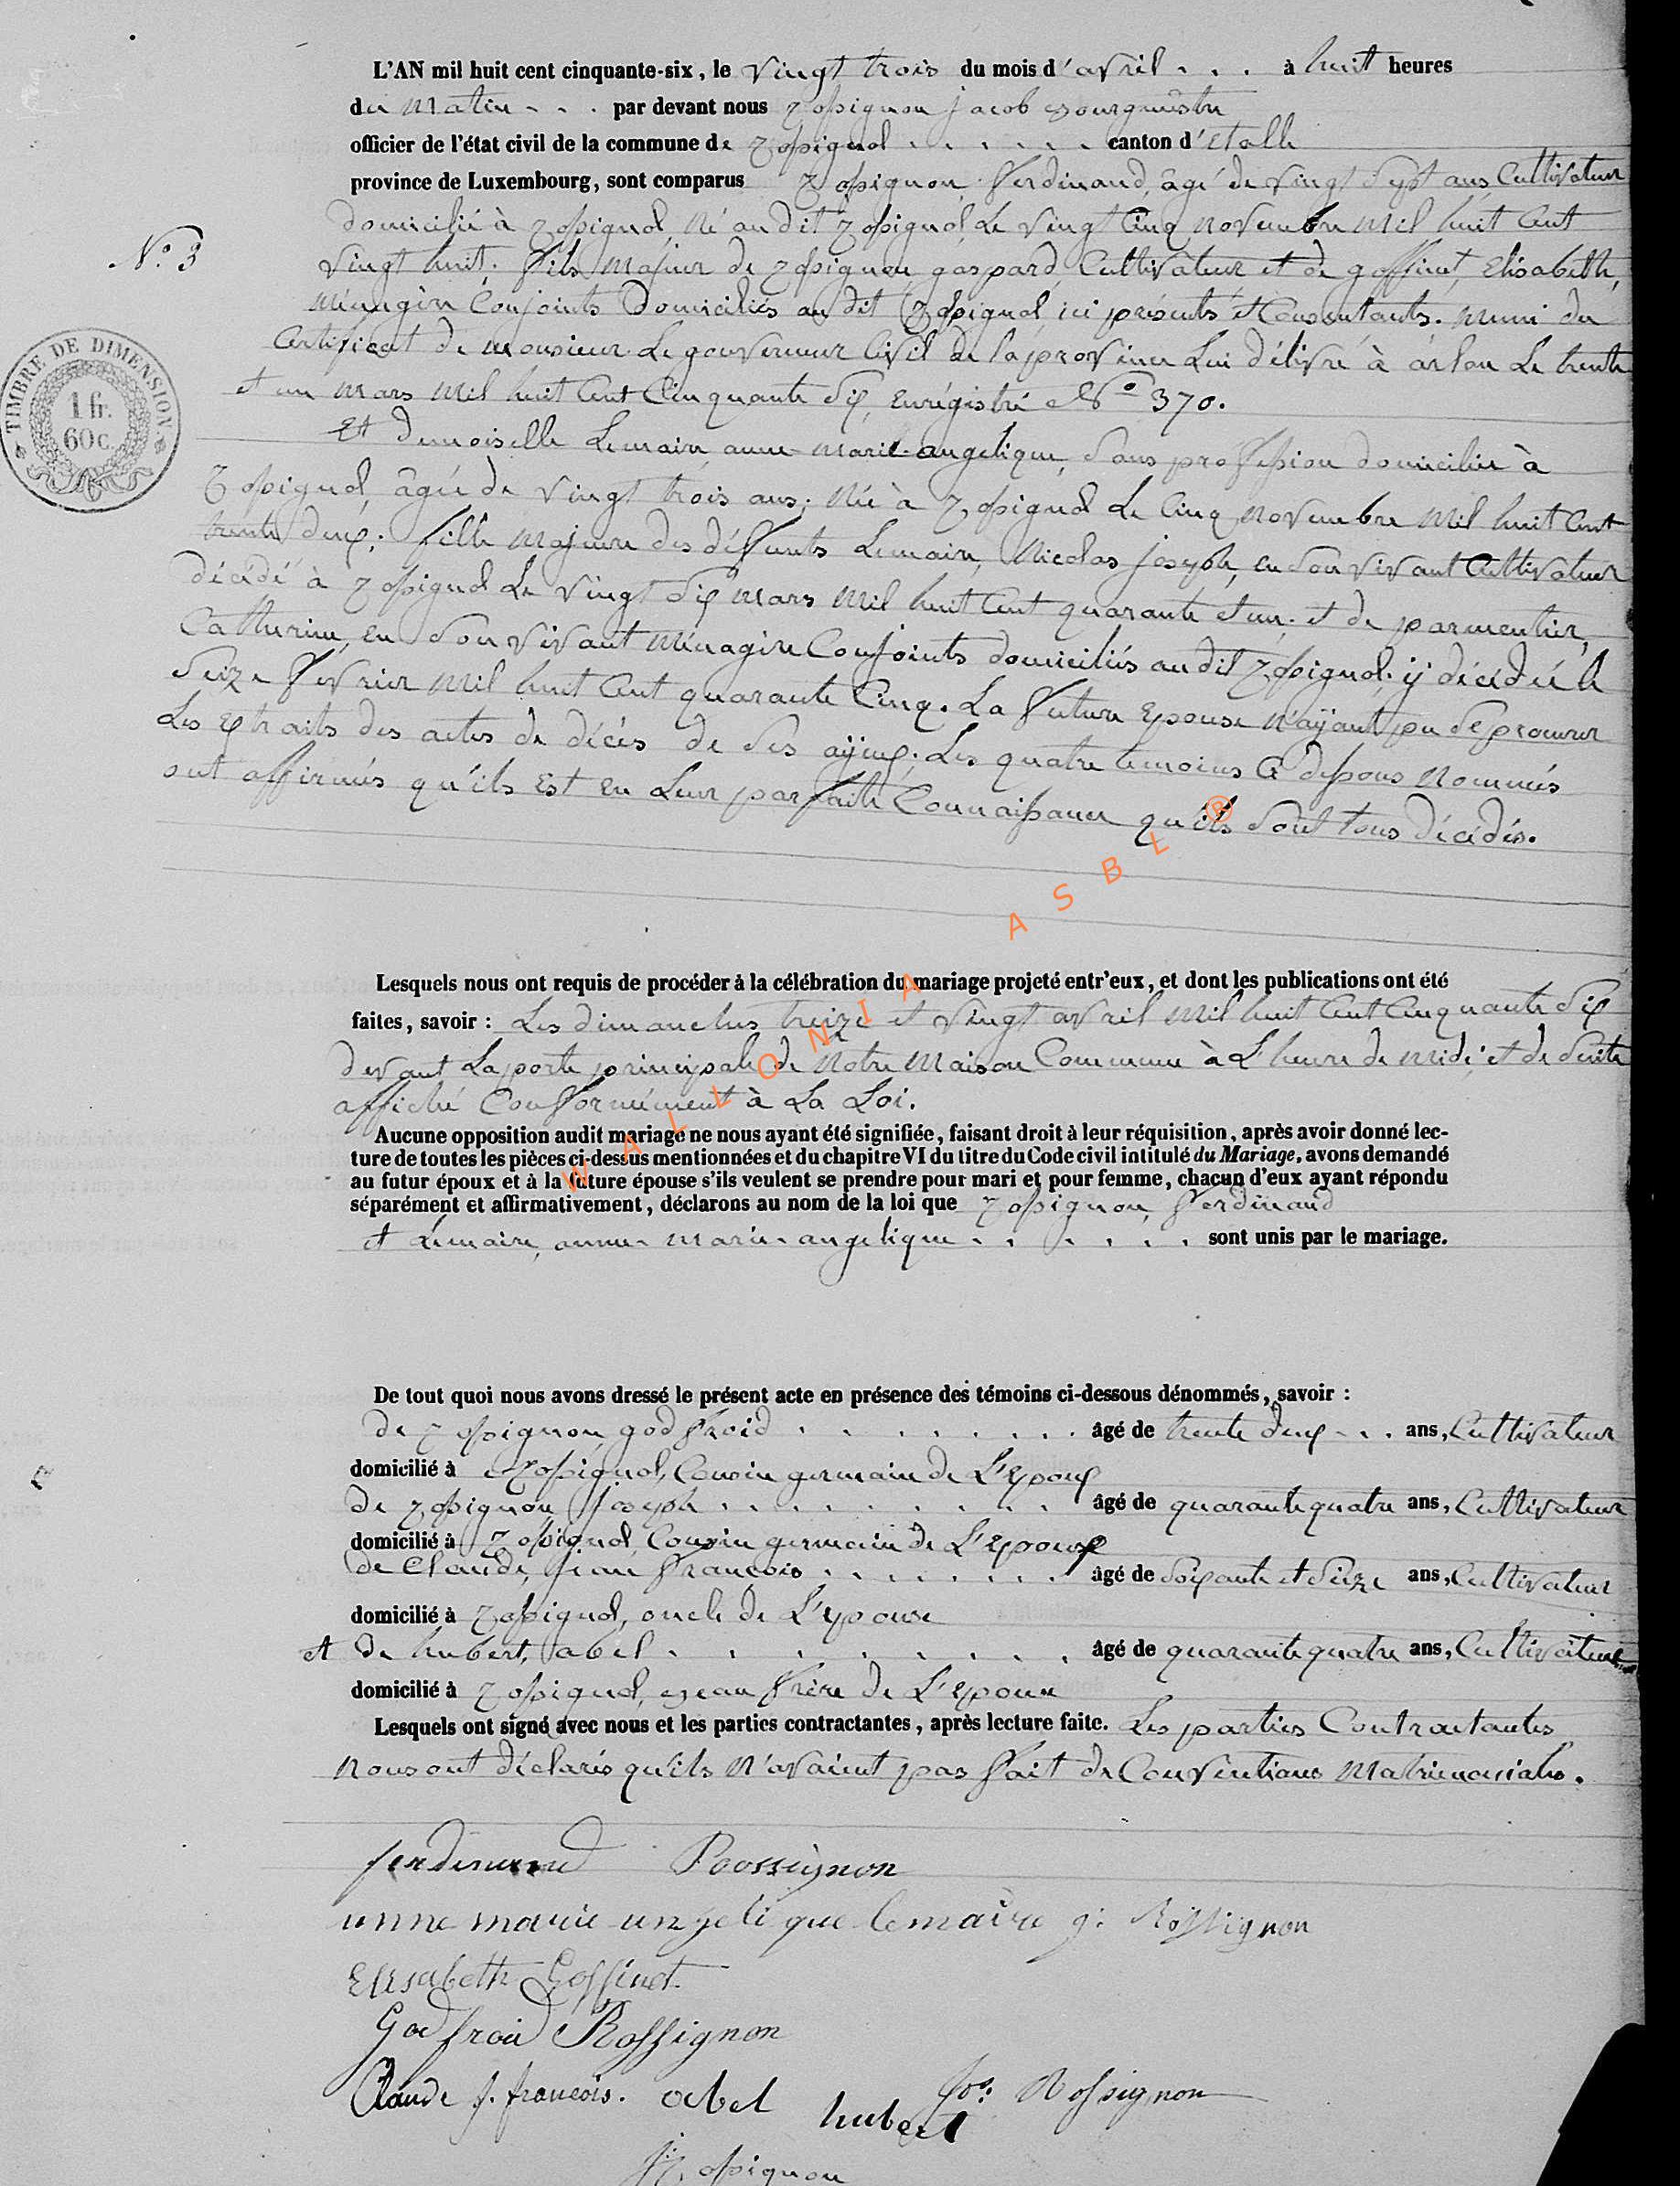 L'AN mil huit cent cinquante-six, le vingt trois du mois d'avril . . . à huit heures
du matin - - . par devant nous Rossignon jacob Bourgmestre
officier de l'état civil de la commune de Rossignol . . . . . . canton d'Etalle
province de Luxembourg, sont comparus Rossignon Ferdinand, âgé de vingt sept ans, Cultivateur
domicilié à Rossignol, Né audit Rossignol, Le vingt Cinq novembre Mil huit Cent
N.° 3
vingt huit. fils Majeur de Rossignon, gaspard, Cultivateur et de goffinet, Elisabeth,
Ménagère Conjoints Domiciliés audit Rossignol, ici présents et Consentants. Muni du
Certificat de monsieur Le gouverneur Civil de la province Lui délivré à arlon Le trente
et un Mars Mil huit Cent Cinquante Six, Enrégistré N° 370.
TIMBRE DE DIMENSION
1 fr.
60 c.
Et demoiselle Lemaire anne-marie-angelique, Sans profession domiciliée à
Rossignol, âgée de vingt trois ans; Née à Rossignol Le Cinq Novembre Mil huit Cent
trente deux; fille Majeure des défunts Lemaire, Nicolas joseph, en Son vivant Cultivateur
décédé à Rossignol Le vingt Six Mars Mil huit Cent quarante et un. et de parmentier,
Catherine, en Son vivant Ménagère Conjoints domiciliés audit Rossignol, ÿ décédée le
Seize fevrier Mil huit Cent quarante Cinq. La future Epouse N'aÿant pu Se procurer
Les Extraits des actes de décès de Ses aÿeux; Les quatre temoins Ci dessous Nommés
ont affirmés qu'ils Est en Leur parfaite Connaissance qu'ils Sont tous décédés.
Lesquels nous ont requis de procéder à la célébration du mariage projeté entr'eux, et dont les publications ont été
faites, savoir : Les dimanches treize et vingt avril Mil huit Cent Cinquante Six
devant La porte principale de Notre Maison Commune à L'heure de Midi; et de Suite
affiché Conformément à La Loi.
Aucune opposition audit mariage ne nous ayant été signifiée, faisant droit à leur réquisition, après avoir donné lec-
ture de toutes les pièces ci-dessus mentionnées et du chapitre VI du titre du Code civil intitulé du Mariage, avons demandé
au futur époux et à la future épouse s'ils veulent se prendre pour mari et pour femme, chacun d'eux ayant répondu
séparément et affirmativement, déclarons au nom de la loi que Rossignon, Ferdinand
et Lemaire, anne-marie-angelique . . . . . . sont unis par le mariage.
De tout quoi nous avons dressé le présent acte en présence des témoins ci-dessous dénommés, savoir :
de Rossignon, godfroid . . . . . . . . âgé de trente deux - . . ans, Cultivateur
domicilié à Rossignol, Cousin germain de L'Epoux
de Rossignon, joseph . . . . . . . . . âgé de quarante quatre ans, Cultivateur
domicilié à Rossignol, Cousin germain de L'Epoux
de Claude, jean françois . . . . . . . âgé de Soixante et Seize ans, Cultivateur
domicilié à Rossignol, oncle de L'epouse
et de hubert, abel . . . . . . . . . âgé de quarante quatre ans, Cultivateur
domicilié à Rossignol, Beau frère de L'Epouse
Lesquels ont signé avec nous et les parties contractantes, après lecture faite. Les parties Contractantes
Nous ont déclarés qu'ils N'avaient pas fait de Conventions Matrimoniales.
ferdinand Roossignon
anne marie angelique lemaire g: Rossignon
Elisabeth Goffinet
Godfroid Rossignon
Claude j. françois. abel hubert Jos: Rossignon
J: Rossignon
WALLONIA ASBL ®